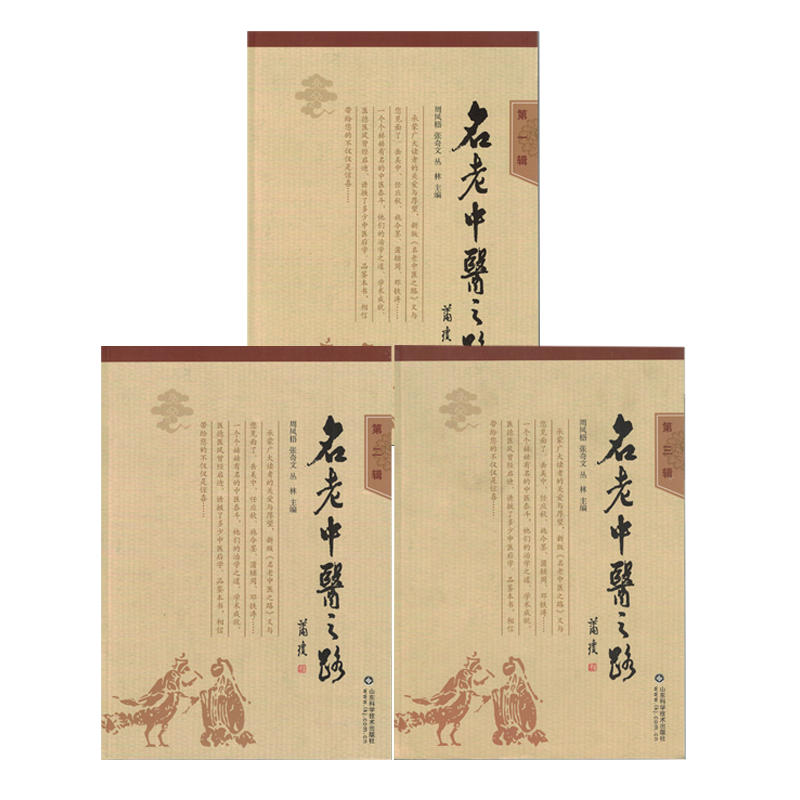 第一辑
名老中醫之路
萧瓊
周凤梧 张奇文 丛 林 主编
承蒙广大读者的关爱与厚望，新版《名老中医之路》又与
您见面了。岳美中、任应秋、施今墨、蒲辅周、邓铁涛……
一个个赫赫有名的中医泰斗，他们的治学之道、学术成就、
医德医风曾经启迪、诱掖了多少中医后学。品鉴本书，相信
带给您的不仅仅是惊喜……
第二辑
名老中醫之路
萧瓊
周凤梧 张奇文 丛 林 主编
承蒙广大读者的关爱与厚望，新版《名老中医之路》又与
您见面了。岳美中、任应秋、施今墨、蒲辅周、邓铁涛……
一个个赫赫有名的中医泰斗，他们的治学之道、学术成就、
医德医风曾经启迪、诱掖了多少中医后学。品鉴本书，相信
带给您的不仅仅是惊喜……
山东科学技术出版社
第三辑
名老中醫之路
萧瓊
周凤梧 张奇文 丛 林 主编
承蒙广大读者的关爱与厚望，新版《名老中医之路》又与
您见面了。岳美中、任应秋、施今墨、蒲辅周、邓铁涛……
一个个赫赫有名的中医泰斗，他们的治学之道、学术成就、
医德医风曾经启迪、诱掖了多少中医后学。品鉴本书，相信
带给您的不仅仅是惊喜……
山东科学技术出版社